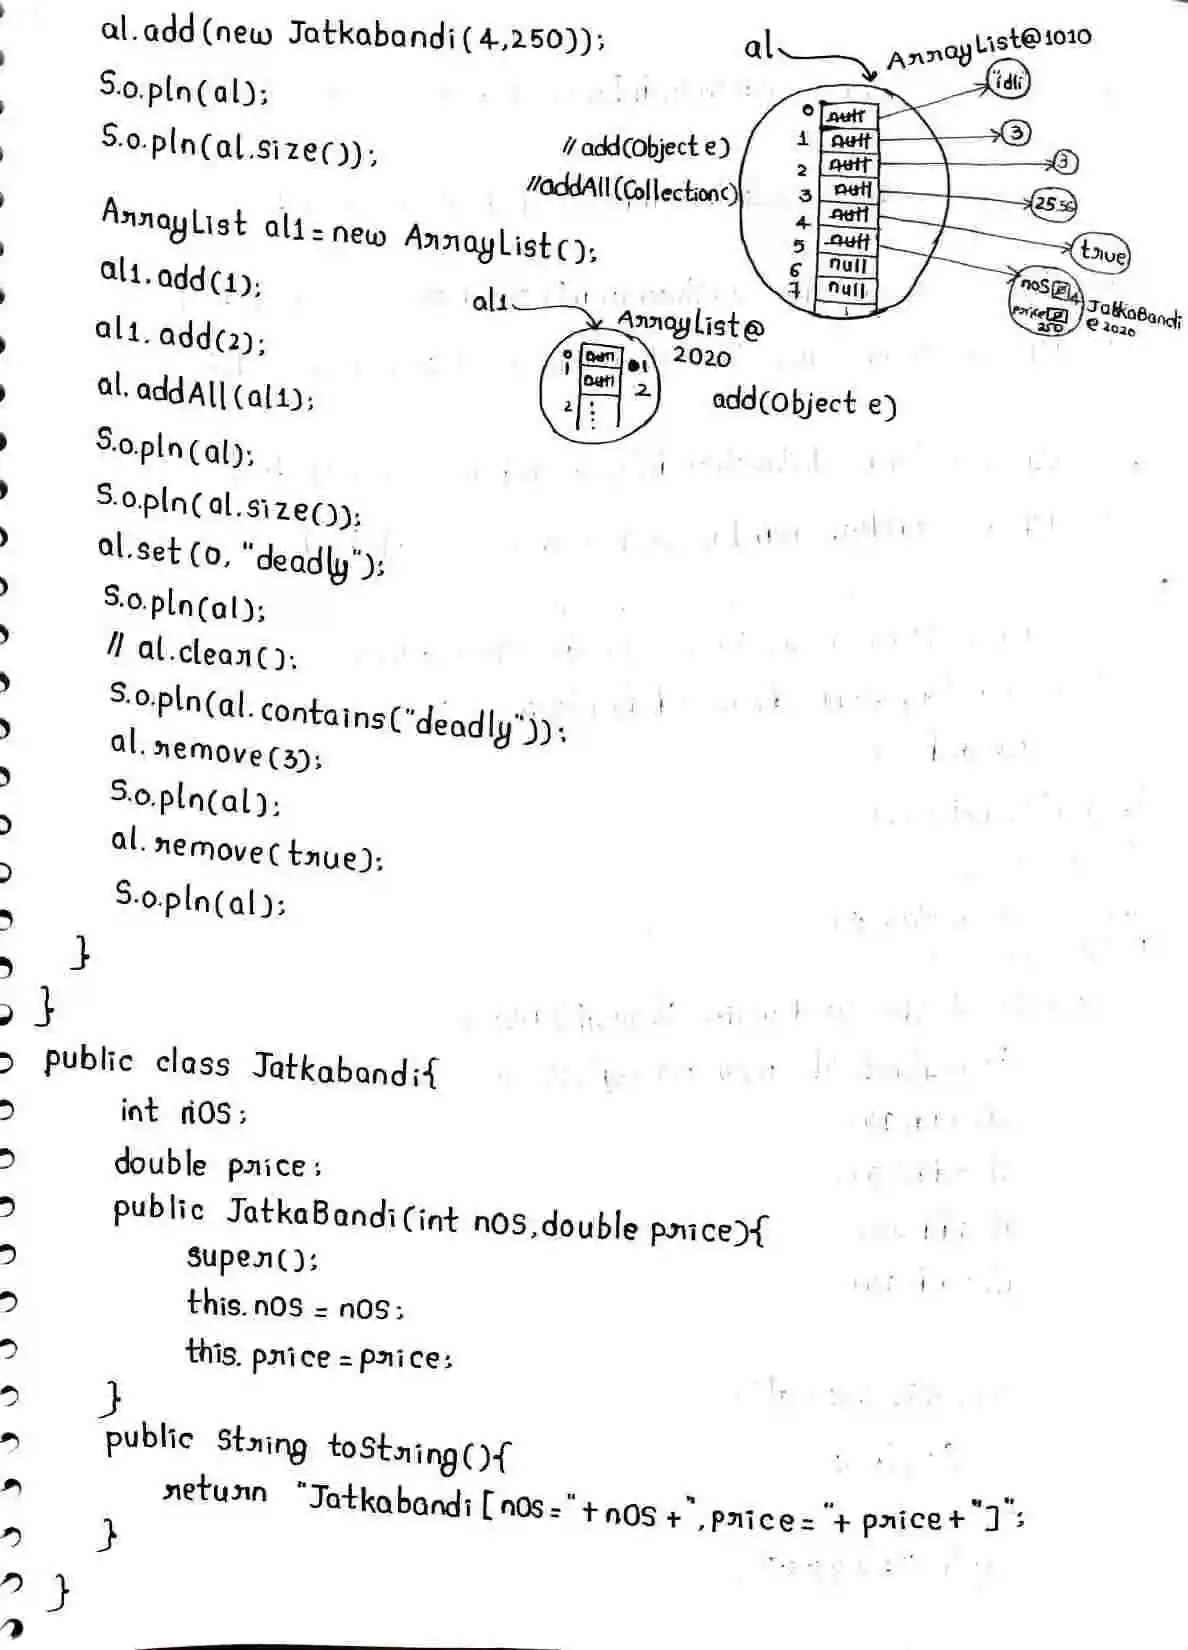 al.add(new Jatkabandi(4,250));
S.o.pln(al);
S.o.pln(al.size());
ArrayList al1 = new ArrayList();
al1.add(1);
al1.add(2);
al.addAll(al1);
S.o.pln(al);
S.o.pln(al.size());
al.set(0, "deadly");
S.o.pln(al);
// al.clear();
S.o.pln(al.contains("deadly"));
al.remove(3);
S.o.pln(al);
al.remove(true);
S.o.pln(al);
}
}
al
ArrayList@1010
// add(Object e)
//addAll(Collection c)
0 null "idli
1 null 3
2 null 3
3 null 25.5
4 null true
5 null
6 null
7 null
nOS 4
price
250
JatkaBandi
@ 2020
al1
ArrayList@
2020
0 null 1
1 null 2
2
add(Object e)
public class Jatkabandi{
int nOS;
double price;
public JatkaBandi(int nOS,double price){
super();
this.nOS = nOS;
this.price = price;
}
public String toString(){
return "Jatkabandi [nOS="+nOS+",price="+ price+"]";
}
}